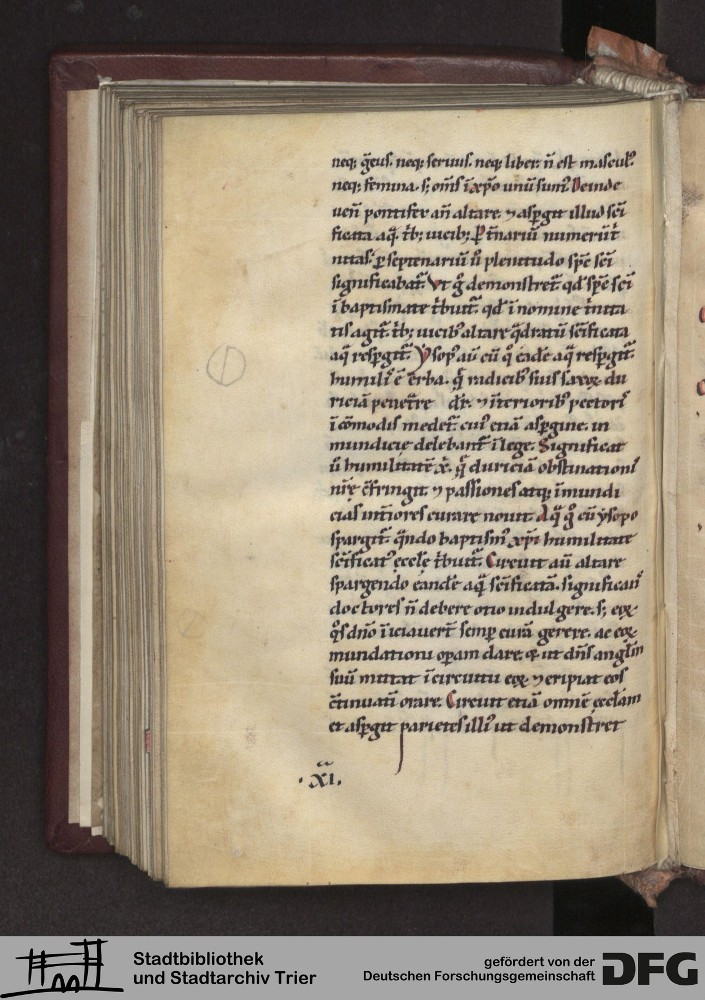 neq; g̃eus. neq; seruus. neq; liber. ñ est mascul᷒
neq; femina. s; om̄s ī xp̄o unū sum᷒. Deinde
ueñ pontifex añ altare. ⁊ asp̱git illud sc̄i
ficata aq̄. t̄b; uicib; P̱ t̄nariū numerū t̄
nitas. p̱ septenariū ū plenitudo sp̄c sc̄i
significabat̄. Vt g̊ demonstret̄ qd̄ sp̄c sc̄i
ī baptismate t̄buit̄. qd̄ ī nomine t̄nita
tis agit̄. t̄b; uicib᷒ altare q̄dratū sc̄ificata
aq̄ resp̱git̄. Ysop᷒ aū cū q̊ eadē aq̄ resp̱git̄.
humil᷒ ē erba. q̄ radicib᷒ suis saxoꝝ du
riciā penet̄re dr̄. ⁊ īteriorib᷒ pectori᷒
īcōmodis medet̄. cui᷒ etiā asp̱gine. in
mundicię delebant̄ ī lege. Significat
ū humilitatē x̄. q̄ duriciā obstinationi᷒
nr̄ę c̄fringit. ⁊ passiones atq; īmundi
cias int̄iores curare nouit. Aq̄ g̊ cū ysopo
spargit̄. q̄ndo baptism᷒ xp̄i humilitate
sc̄ificat᷒ ęcclę t̄buit̄. Circuit aū altare
spargendo eandē aq̄ sc̄ificatā. significañ
doctores ñ debere otio indulgere. s; eoꝝ
q̊s dn̄o īiciauer̄t semp̱ curā gerere. ac eoꝝ
mundationi op̱am dare. & ut dn̄s angl̄m
suū mittat ī circuitu eoꝝ. ⁊ eripiat eos
c̄tinuatī orare. Circuit etiā omnē ęccl̄am
et asp̱git parietes illi᷒ ut demonstret
. XI.
Stadtbibliothek
und Stadtarchiv Trier
gefördert von der
Deutschen Forschungsgemeinschaft
DFG